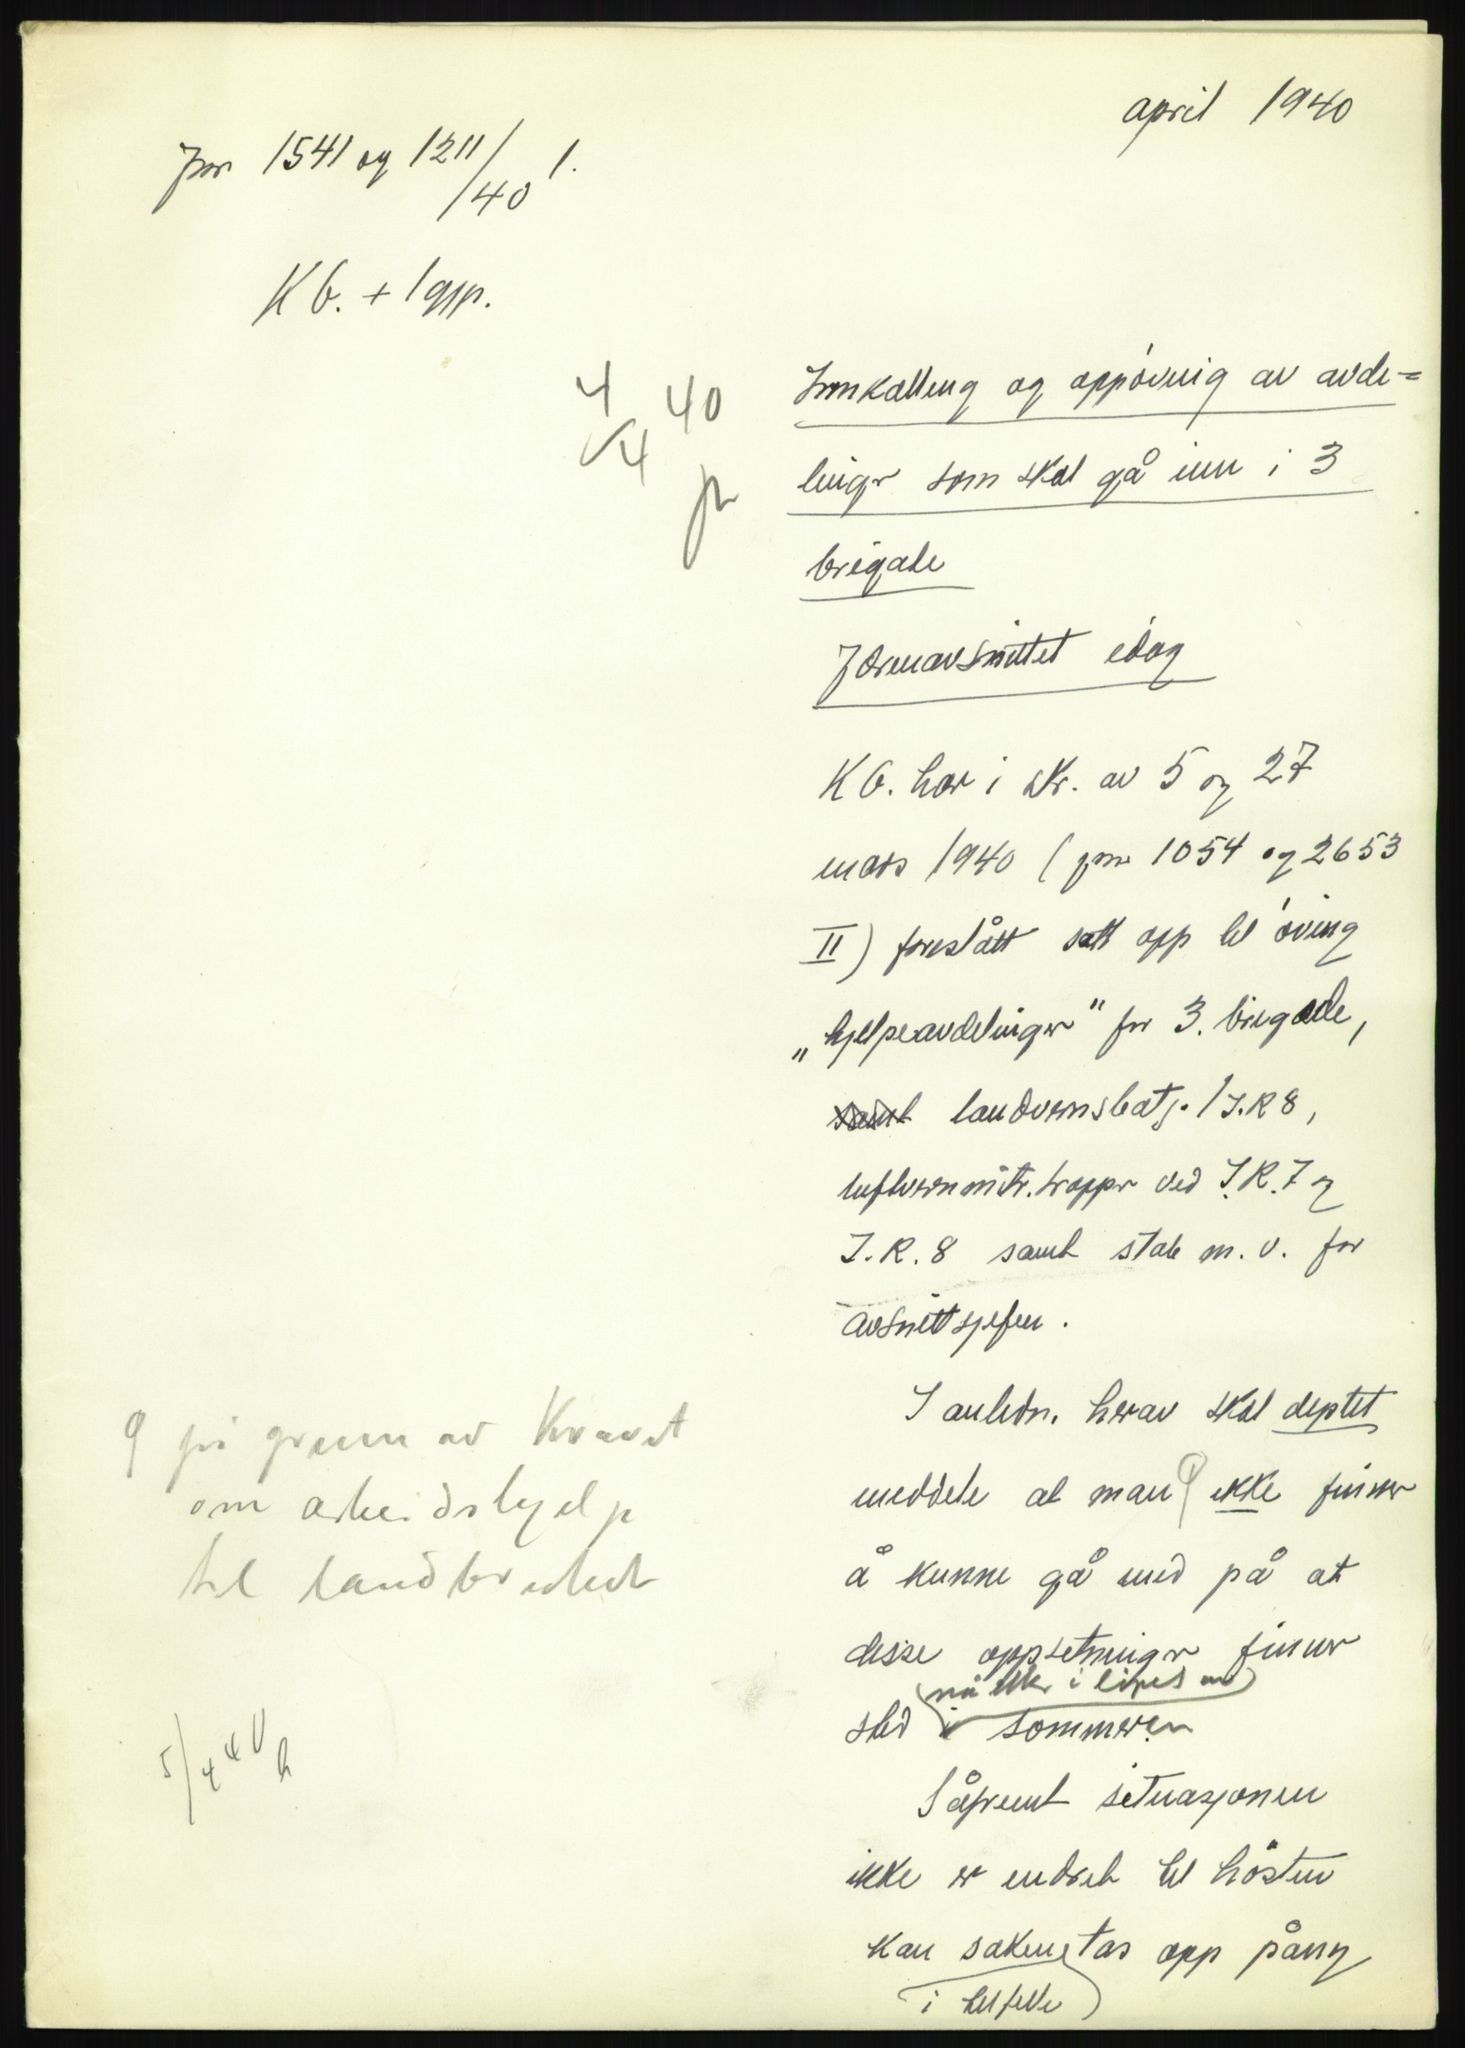 april 1940
Jnr 1541 og 1211/40 1.
KG. + 1 gjp.
4/4 40
Innkalling og oppövnig av avde=
linger som skal gå inn i 3
brigade
Jærenavsnittet idag
KG. har i skr. av 5 og 27
mars 1940 (jnr 1054 og 2653
II) foreslått satt opp til öving
„hjelpeavdelinger" for 3. brigade,
samt landvernsbatj. / I.R 8,
luftvernmitr. tropper ved I.R. 7 og
I.R. 8 samt stab m. v. for
avsnittsjefen.
I anledn. herav skal deptet
meddele at man ikke finner
på grunn av kravet
om arbeidshjelp
til landbruket
å kunne gå med på at
disse oppsetninger finner
nå eller i löpet av
sted i sommeren
5/4 40
Såfremt situasjonen
ikke er endret til hösten
kan saken tas opp påny
i tilfelle